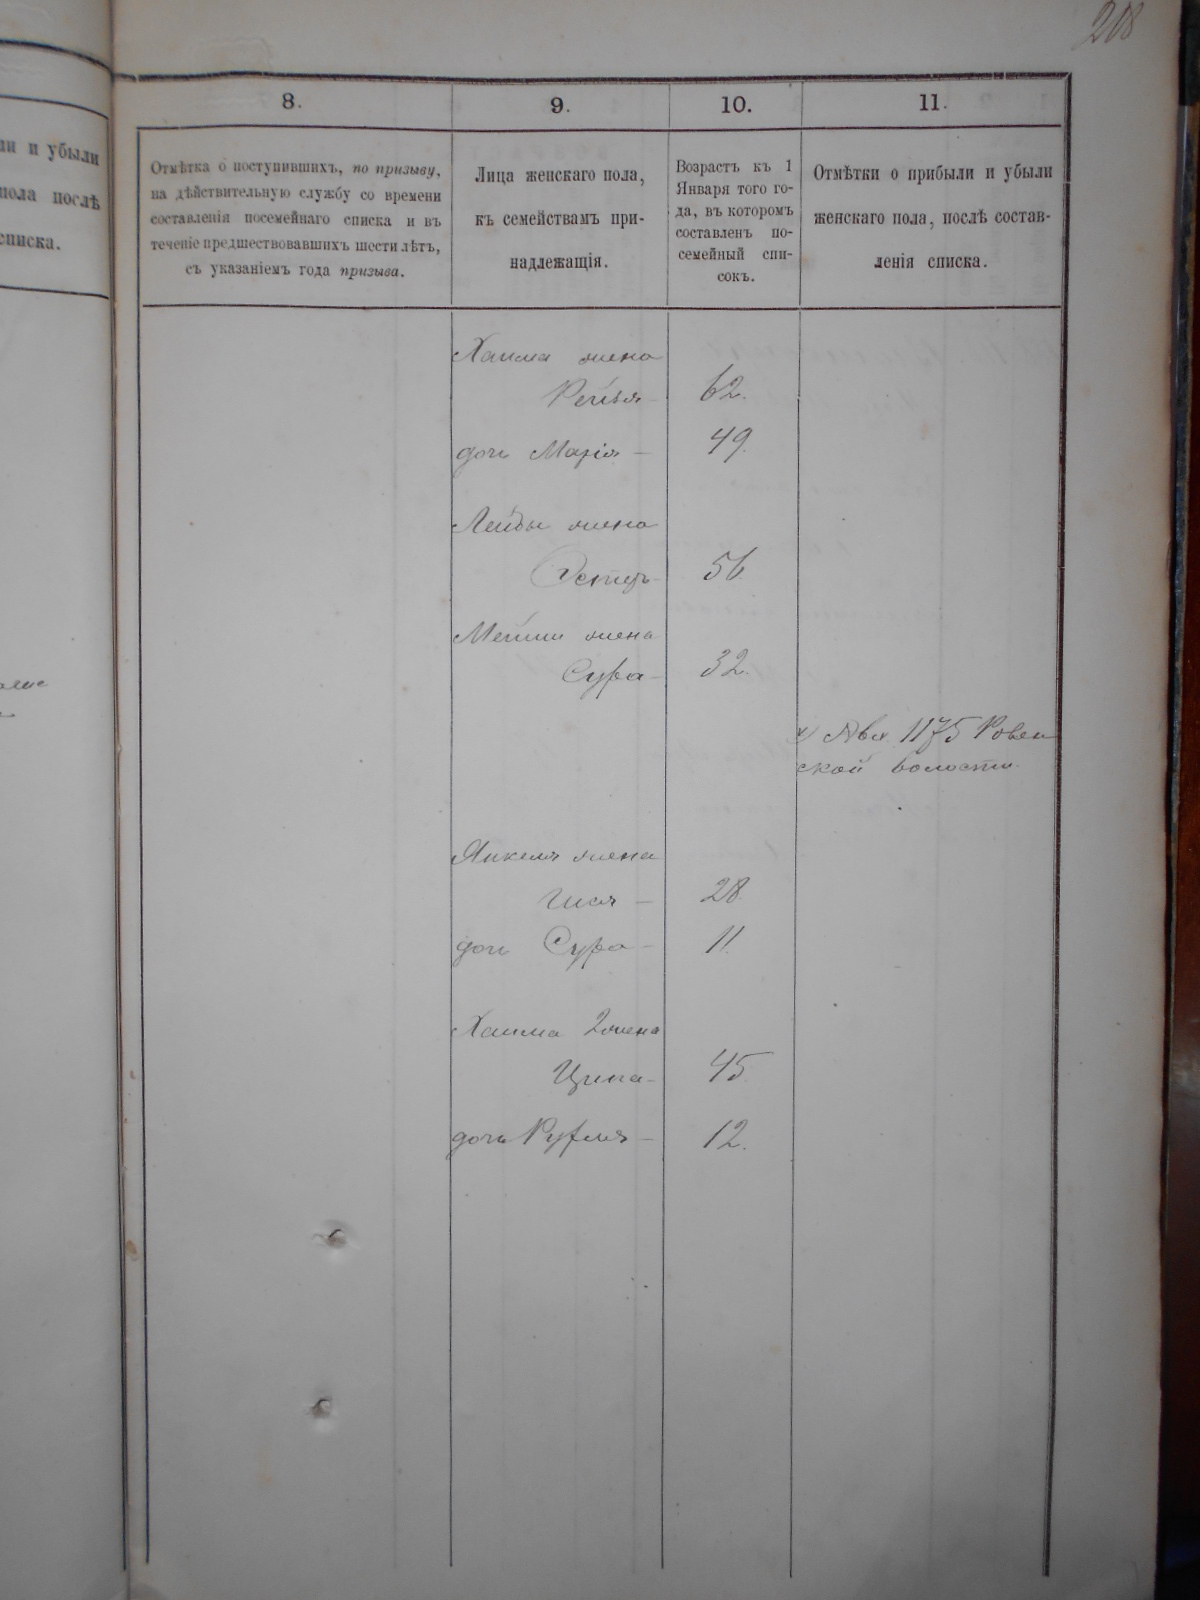 208
8.
9.
10.
11.
ли и убыли
пола послѣ
списка.
Отмѣтка о поступившихъ, по призыву,
на дѣйствительную службу со времени
составленія посемейнаго списка и въ
теченіе предшествовавшихъ шести лѣтъ,
съ указаніемъ года призыва.
Лица женскаго пола,
къ семействамъ при-
надлежащія.
Возрастъ къ 1
Января того го-
да, въ которомъ
составленъ по-
семейный спи-
сокъ.
Отмѣтки о прибыли и убыли
женскаго пола, послѣ состав-
ленія списка.
Хаима жена
Рейзя - 62.
дочь Марія - 49.
Лейбы жена
Эстеръ - 56
Мейши жена
Сура - 32.
1175 Ровен
ской волости.
Янкеля жена
28
дочь Сура - 11.
Хаима 2 жена
Ципа - 45
дочь Рухля - 12.